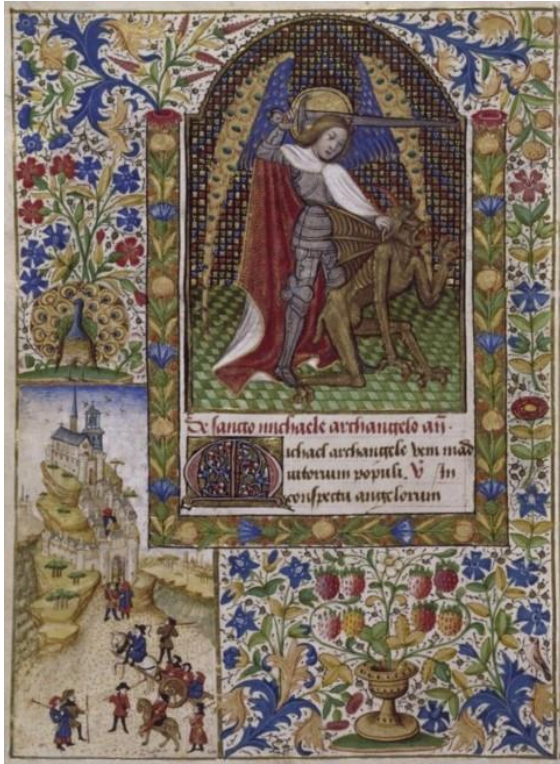 De sancto michaele archangelo añ.
Michael archangele veni in ad
iutorium populi. V In
conspectu angelorum